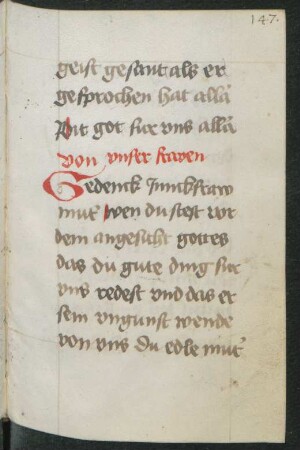 147.
geist gesant als er
gesprochen hat allā
Bit got fur vns allā
von vnser frawen
Gedenck Junckfraw
mut' wen du stest vor
dem angesicht gottes
das du gute ding fur
vns redest vnd das er
sein vngunst wende
von vns du edle mut'